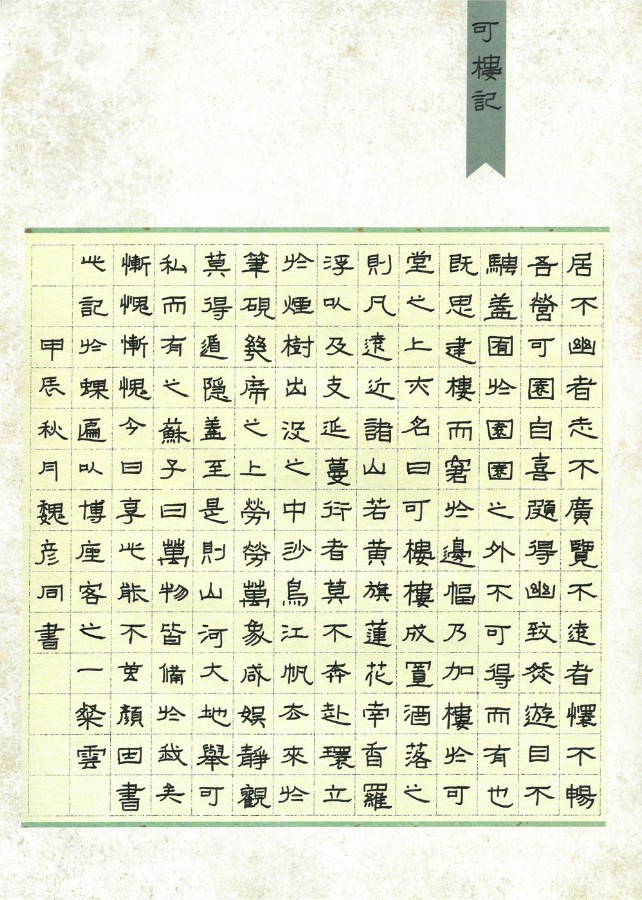 可樓記
居不幽者志不廣覽不遠者懷不暢
吾營可園自喜頗得幽致然遊目不
騁蓋囿於園園之外不可得而有也
既思建樓而窘於邊幅乃加樓於可
堂之上亦名曰可樓樓成置酒落之
則凡遠近諸山若黃旗蓮花南香羅
浮以及支延蔓衍者莫不奔赴環立
於煙樹出沒之中沙鳥江帆去來於
筆硯席之上勞勞萬象咸娛靜觀
莫得遁隱蓋至是則山河大地舉可
私而有之蘇子曰萬物皆備於我矣
慚愧慚愧今日享此能不顏因書
此記於遍以博座客之一粲雲
甲辰秋月魏彦同書